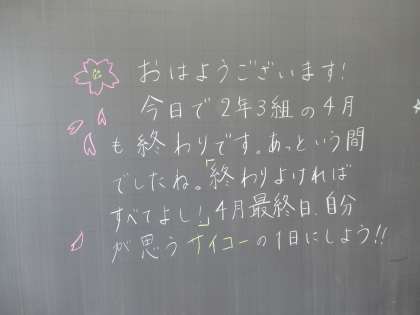 おはようございます!
今日で2年3組の4月
も終わりです。あっという間
でしたね。「終わりよければ
すべてよし!」4月最終日、自分
が思うサイコーの1日にしよう!!